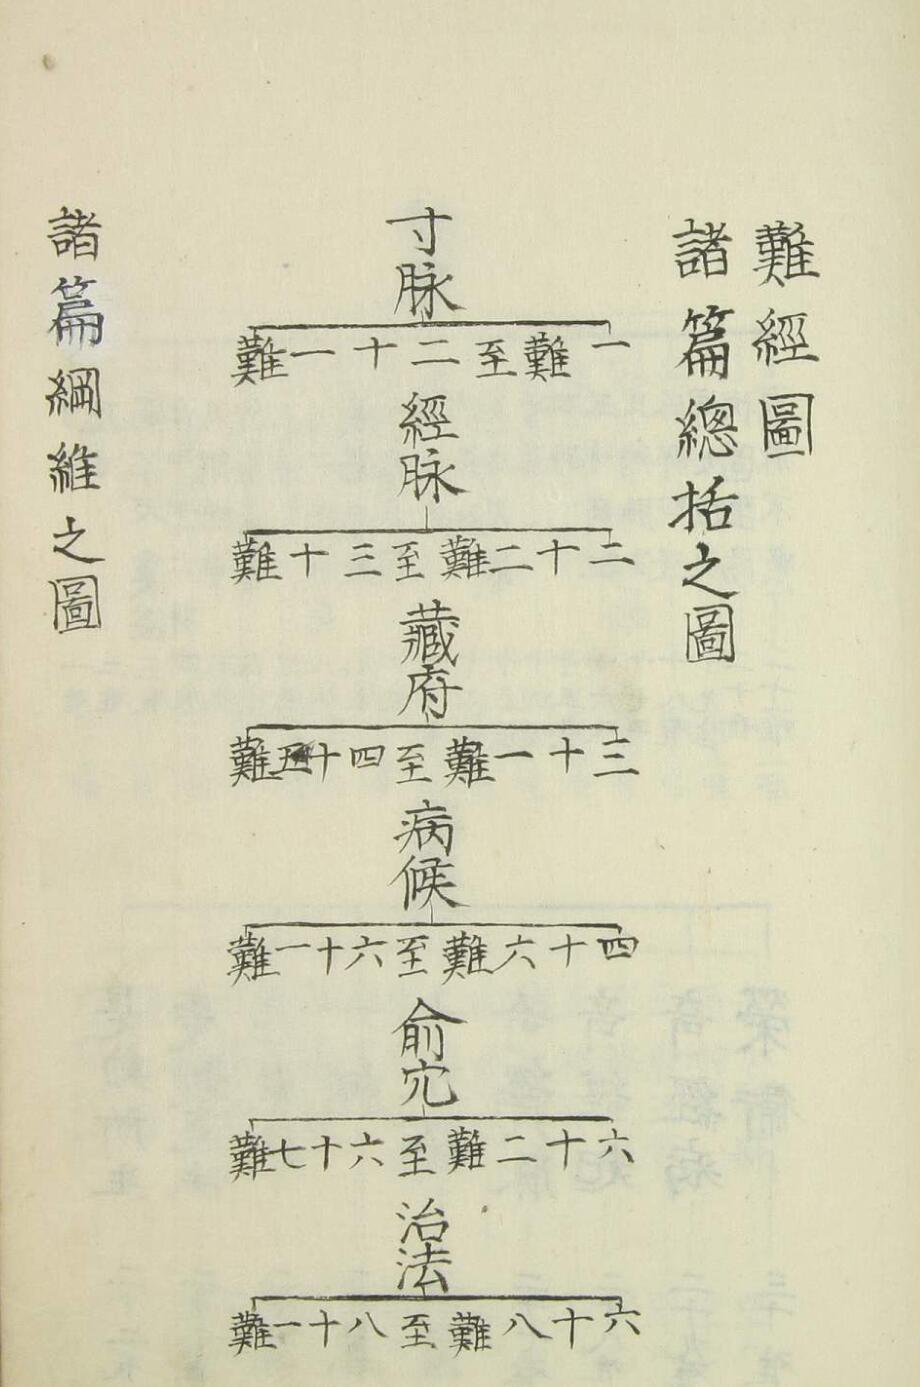 難經圖
諸篇總括之圖
寸脉
一難至二十一難
經脉
二十二難至三十難
藏府
三十一難至四十五難
病候
四十六難至六十一難
俞穴
六十二難至六十七難
治法
六十八難至八十一難
諸篇綱維之圖